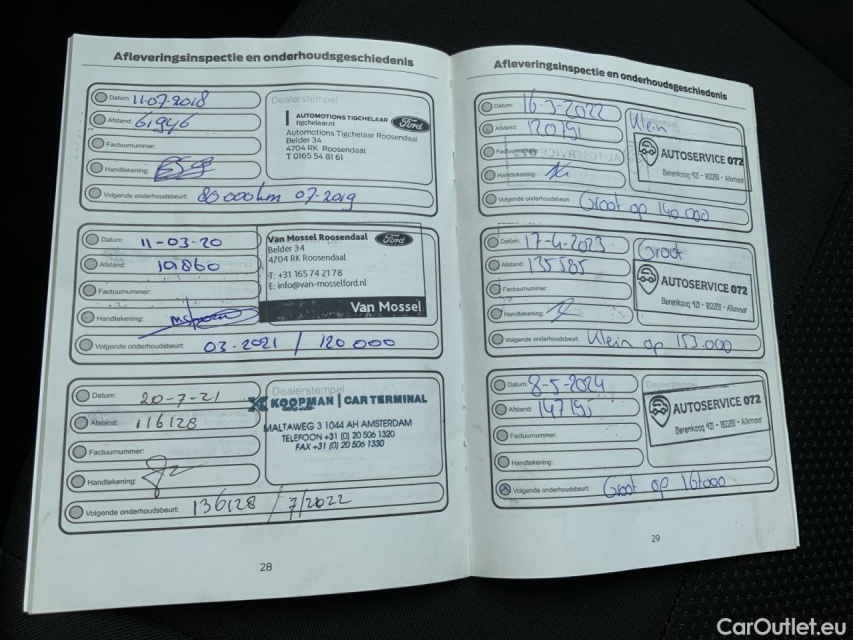 Afleveringsinspectie en onderhoudsgeschiedenis
Datum: 11-07-2018
Dealerstempel
Afstand: 61946
AUTOMOTIONS TIGCHELAAR
tigchelaar.nl
Ford
Automotions Tigchelaar Roosendaal
Belder 34
4704 RK Roosendaal
T 0165 54 81 61
Factuurnummer:
Handtekening:
Volgende onderhoudsbeurt: 80 000 km 07-2019
Datum: 11-03-20
Afstand: 101860
Van Mossel Roosendaal
Ford
Belder 34
4704 RK Roosendaal
T: +31 165 74 21 78
E: info@van-mosselford.nl
Van Mossel
Factuurnummer:
Handtekening:
Volgende onderhoudsbeurt: 03-2021 / 120 000
Datum: 20-7-21
Dealerstempel
Afstand: 116128
KOOPMAN | CAR TERMINAL
MALTAWEG 3 1044 AH AMSTERDAM
TELEFOON +31 (0) 20 506 1320
FAX +31 (0) 20 506 1330
Factuurnummer:
Handtekening:
Volgende onderhoudsbeurt: 136128 / 7/2022
28
Afleveringsinspectie en onderhoudsgeschiedenis
Datum: 16-3-2022
Klein
Afstand: 120191
AUTOSERVICE 072
Berenkoog 42i - 1822BJ - Alkmaar
Factuurnummer:
Handtekening:
Volgende onderhoudsbeurt: Groot op 140.000
Datum: 17-4-2023
Groot
Afstand: 135585
AUTOSERVICE 072
Berenkoog 42i - 1822BJ - Alkmaar
Factuurnummer:
Handtekening:
Volgende onderhoudsbeurt: Klein op 153.000
Datum: 8-5-2024
Afstand: 147195
AUTOSERVICE 072
Berenkoog 42i - 1822BJ - Alkmaar
Factuurnummer:
Handtekening:
Volgende onderhoudsbeurt: Groot op 167000
29
CarOutlet.eu